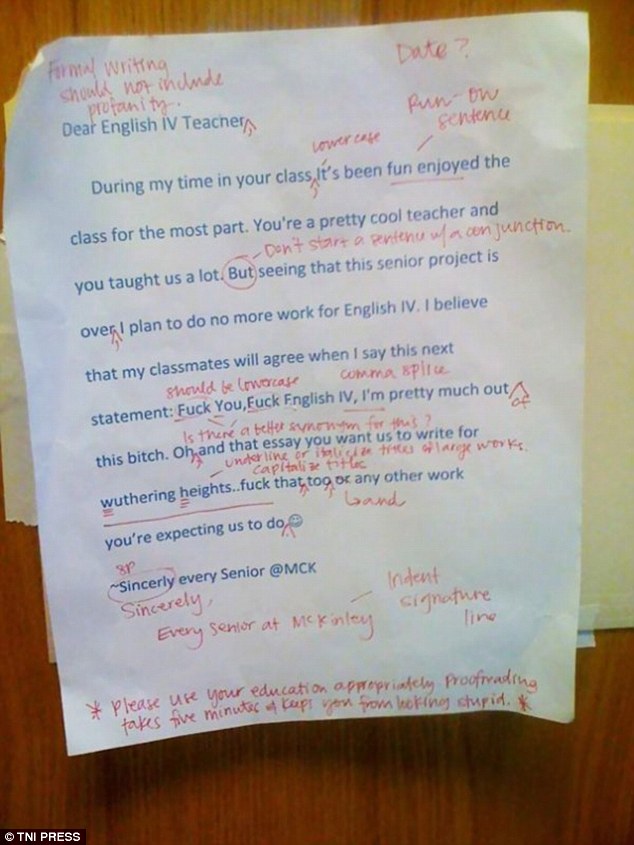 Formal writing
should not include
profanity.
Date?
Run-on
sentence
Dear English IV Teacher^
lowercase
During my time in your class^It's been fun enjoyed the
class for the most part. You're a pretty cool teacher and
Don't start a sentence w/ a conjunction.
you taught us a lot. But seeing that this senior project is
over^I plan to do no more work for English IV. I believe
that my classmates will agree when I say this next
should be lowercase
comma splice
statement: Fuck You,Fuck English IV, I'm pretty much out^
of
Is there a better synonym for this?
this bitch. Oh^and that essay you want us to write for
underline or italicize titles of large works.
capitalize titles
wuthering heights..fuck that^too^or any other work
and
you're expecting us to do^☺
sp
~Sincerly every Senior @MCK
Sincerely,
Every Senior at McKinley
Indent
signature
line
* Please use your education appropriately Proofreading
takes five minutes & keeps you from looking stupid. *
© TNI PRESS